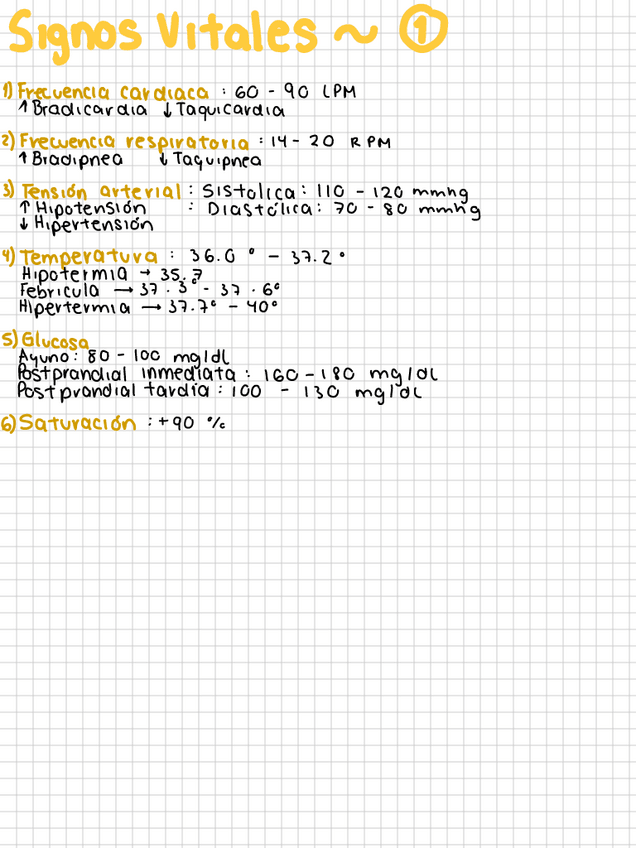 Signos Vitales ~ ①
1) Frecuencia cardiaca : 60 - 90 LPM
↑ Bradicardia ↓ Taquicardia
2) Frecuencia respiratoria : 14 - 20 RPM
↑ Bradipnea ↓ Taquipnea
3) Tensión arterial : Sistolica : 110 - 120 mmhg
↑ Hipotensión : Diastólica : 70 - 80 mmhg
↓ Hipertensión
4) Temperatura : 36.0 ° - 37.2 °
Hipotermia → 35.7
Febricula → 37.3° - 37.6°
Hipertermia → 37.7° - 40°
5) Glucosa
Ayuno : 80 - 100 mg/dl
Postprandial inmediata : 160 - 180 mg/dl
Postprandial tardía : 100 - 130 mg/dl
6) Saturación : +90 %